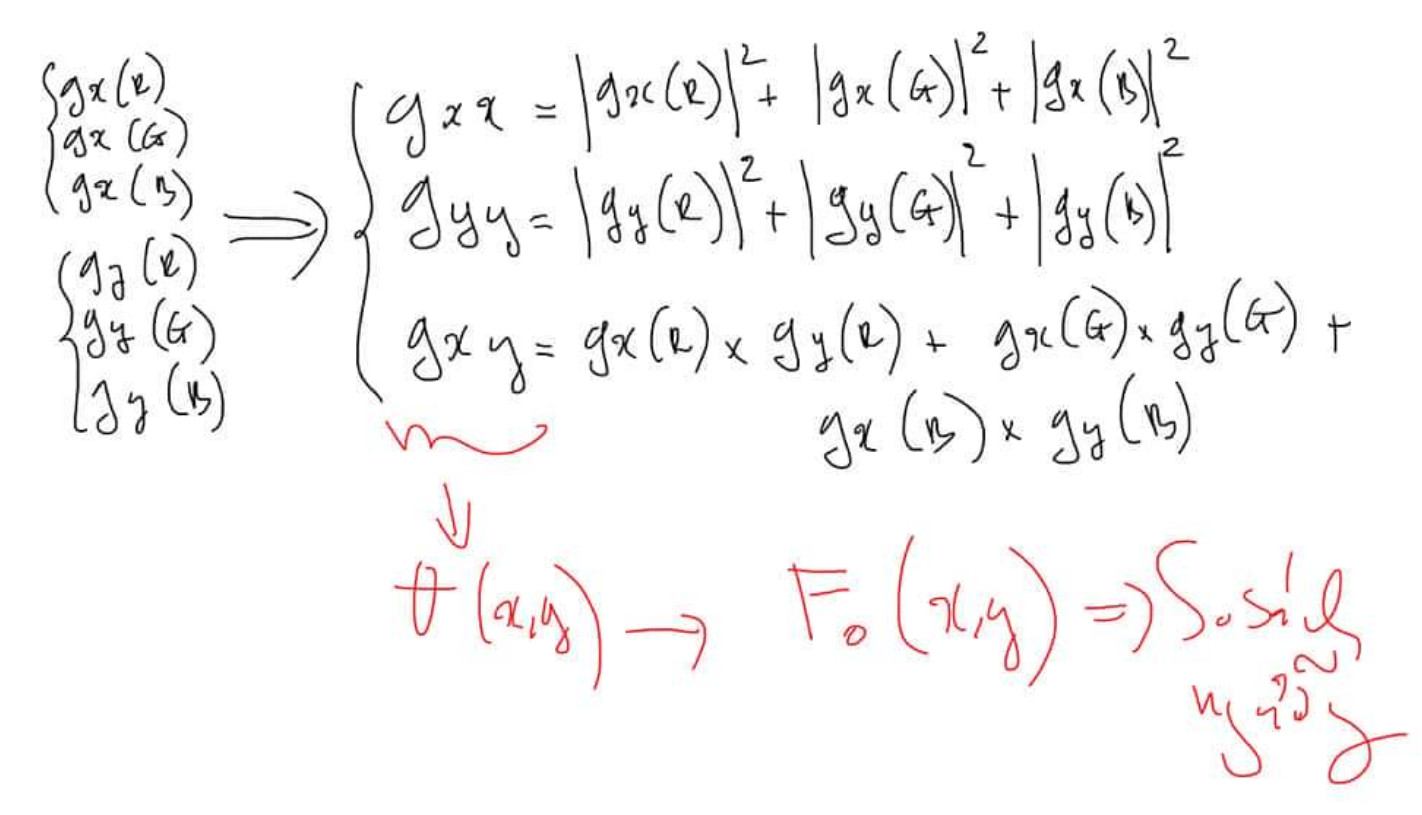 gx(R)
gx(G)
gx(B)
gy(R)
gy(G)
gy(B)
⇒
gxx = |gx(R)|² + |gx(G)|² + |gx(B)|²
gyy = |gy(R)|² + |gy(G)|² + |gy(B)|²
gxy = gx(R) × gy(R) + gx(G) × gy(G) +
gx(B) × gy(B)
↓
θ(x,y) → F₀(x,y) ⇒ So sánh
ngưỡng